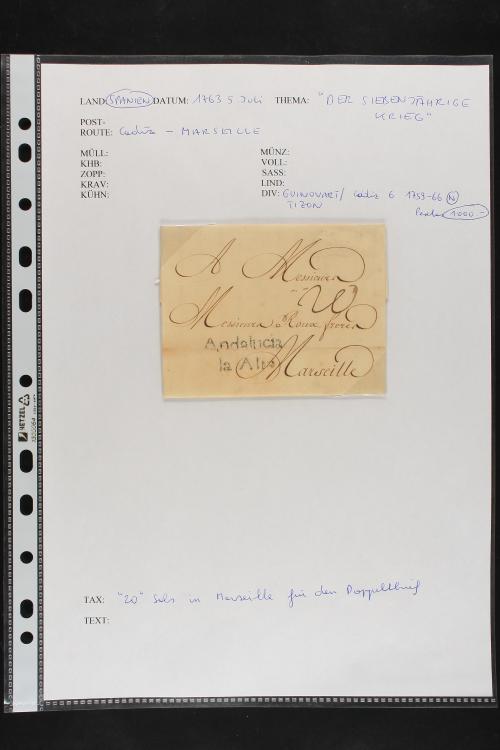 LAND SPANIEN DATUM: 1763 5 Juli THEMA: "DER SIEBENJÄHRIGE
KRIEG"
POST-
ROUTE: Cadiz - MARSEILLE
MÜLL: MÜNZ:
KHB: VOLL:
ZOPP: SASS:
KRAV: LIND:
KÜHN: DIV: GUINOVART/ Cadiz 6 1759-66 N
TIZON 1000.-
A Messieurs
20
Messieurs Roux freres
Andalucia
la Alta
Marseille
HETZEL
TAX: "20" Sols in Marseille für den Doppelbrief
TEXT: